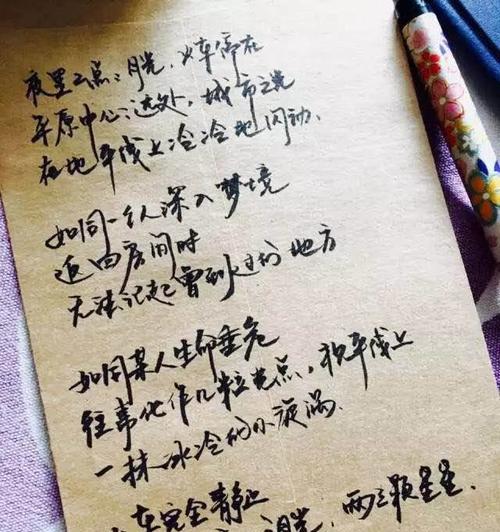 夜里二点:月光,火车停在
平原中心;远处,城市之光
在地平线上冷冷地闪动.
如同一个人深入梦境
返回房间时
无法记起曾到过的地方
如同某人生命垂危
往事化作几粒光点,视平线上
一抹冰冷的小旋涡.
车完全静止
月光,两三颗星星.